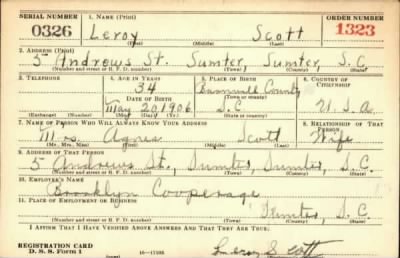 SERIAL NUMBER 1. NAME (Print) ORDER NUMBER
0326 Leroy Scott 1323
(First) (Middle) (Last)
2. ADDRESS (Print)
5 Andrews St. Sumter, Sumter, S.C.
(Number and street or R. F. D. number) (Town) (County) (State)
3. TELEPHONE 4. AGE IN YEARS 5. PLACE OF BIRTH 6. COUNTRY OF CITIZENSHIP
34 County
DATE OF BIRTH (Town or county)
May 20 1906 S.C U.S.A
(Exchange) (Number) (Mo.) (Day) (Yr.) (State or country)
7. NAME OF PERSON WHO WILL ALWAYS KNOW YOUR ADDRESS 8. RELATIONSHIP OF THAT PERSON
Mrs. Agnes Scott Wife
(Mr., Mrs., Miss) (First) (Middle) (Last)
9. ADDRESS OF THAT PERSON
5 Andrews St., Sumter, Sumter, S.C.
(Number and street or R. F. D. number) (Town) (County) (State)
10. EMPLOYER'S NAME
Brooklyn Cooperage
11. PLACE OF EMPLOYMENT OR BUSINESS
Sumter, S.C.
(Number and street or R. F. D. number) (Town) (County) (State)
I AFFIRM THAT I HAVE VERIFIED ABOVE ANSWERS AND THAT THEY ARE TRUE.
REGISTRATION CARD
D. S. S. Form 1 16-17105 Leroy Scott